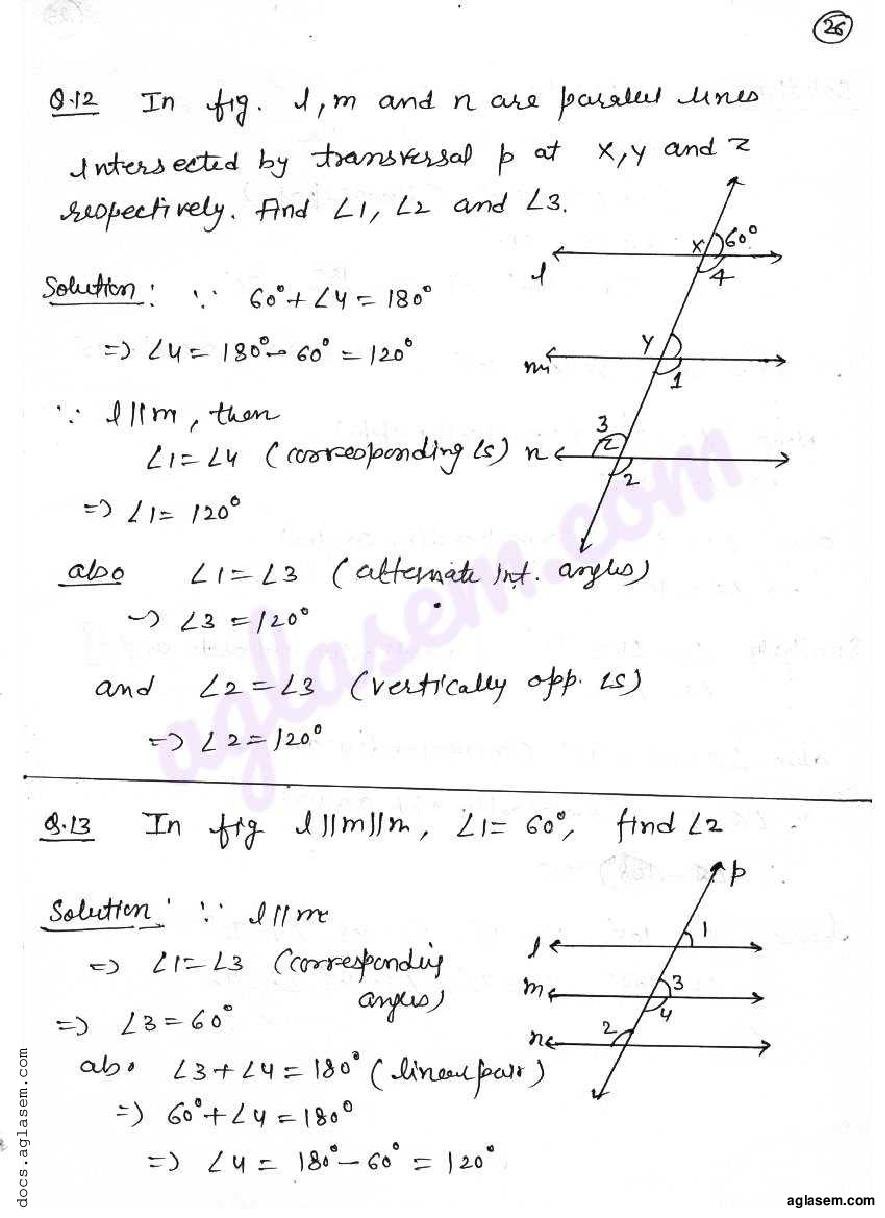 26
Q.12 In fig. l, m and n are parallel lines
intersected by transversal p at X, Y and Z
respectively. Find ∠1, ∠2 and ∠3.
X 60°
l 4
Solution: ∵ 60° + ∠4 = 180°
⇒ ∠4 = 180° - 60° = 120°
Y
m 1
∵ l || m, then
∠1 = ∠4 (corresponding ∠s)
3
n Z
2
⇒ ∠1 = 120°
also ∠1 = ∠3 (alternate int. angles)
→ ∠3 = 120°
and ∠2 = ∠3 (vertically opp. ∠s)
⇒ ∠2 = 120°
aglasem.com
Q.13 In fig l || m || m, ∠1 = 60°, find ∠2
p
Solution: ∵ l || m
l 1
⇒ ∠1 = ∠3 (corresponding
angles)
m 3
4
⇒ ∠3 = 60°
n 2
also ∠3 + ∠4 = 180° (linear pair)
⇒ 60° + ∠4 = 180°
⇒ ∠4 = 180° - 60° = 120°
docs.aglasem.com
aglasem.com